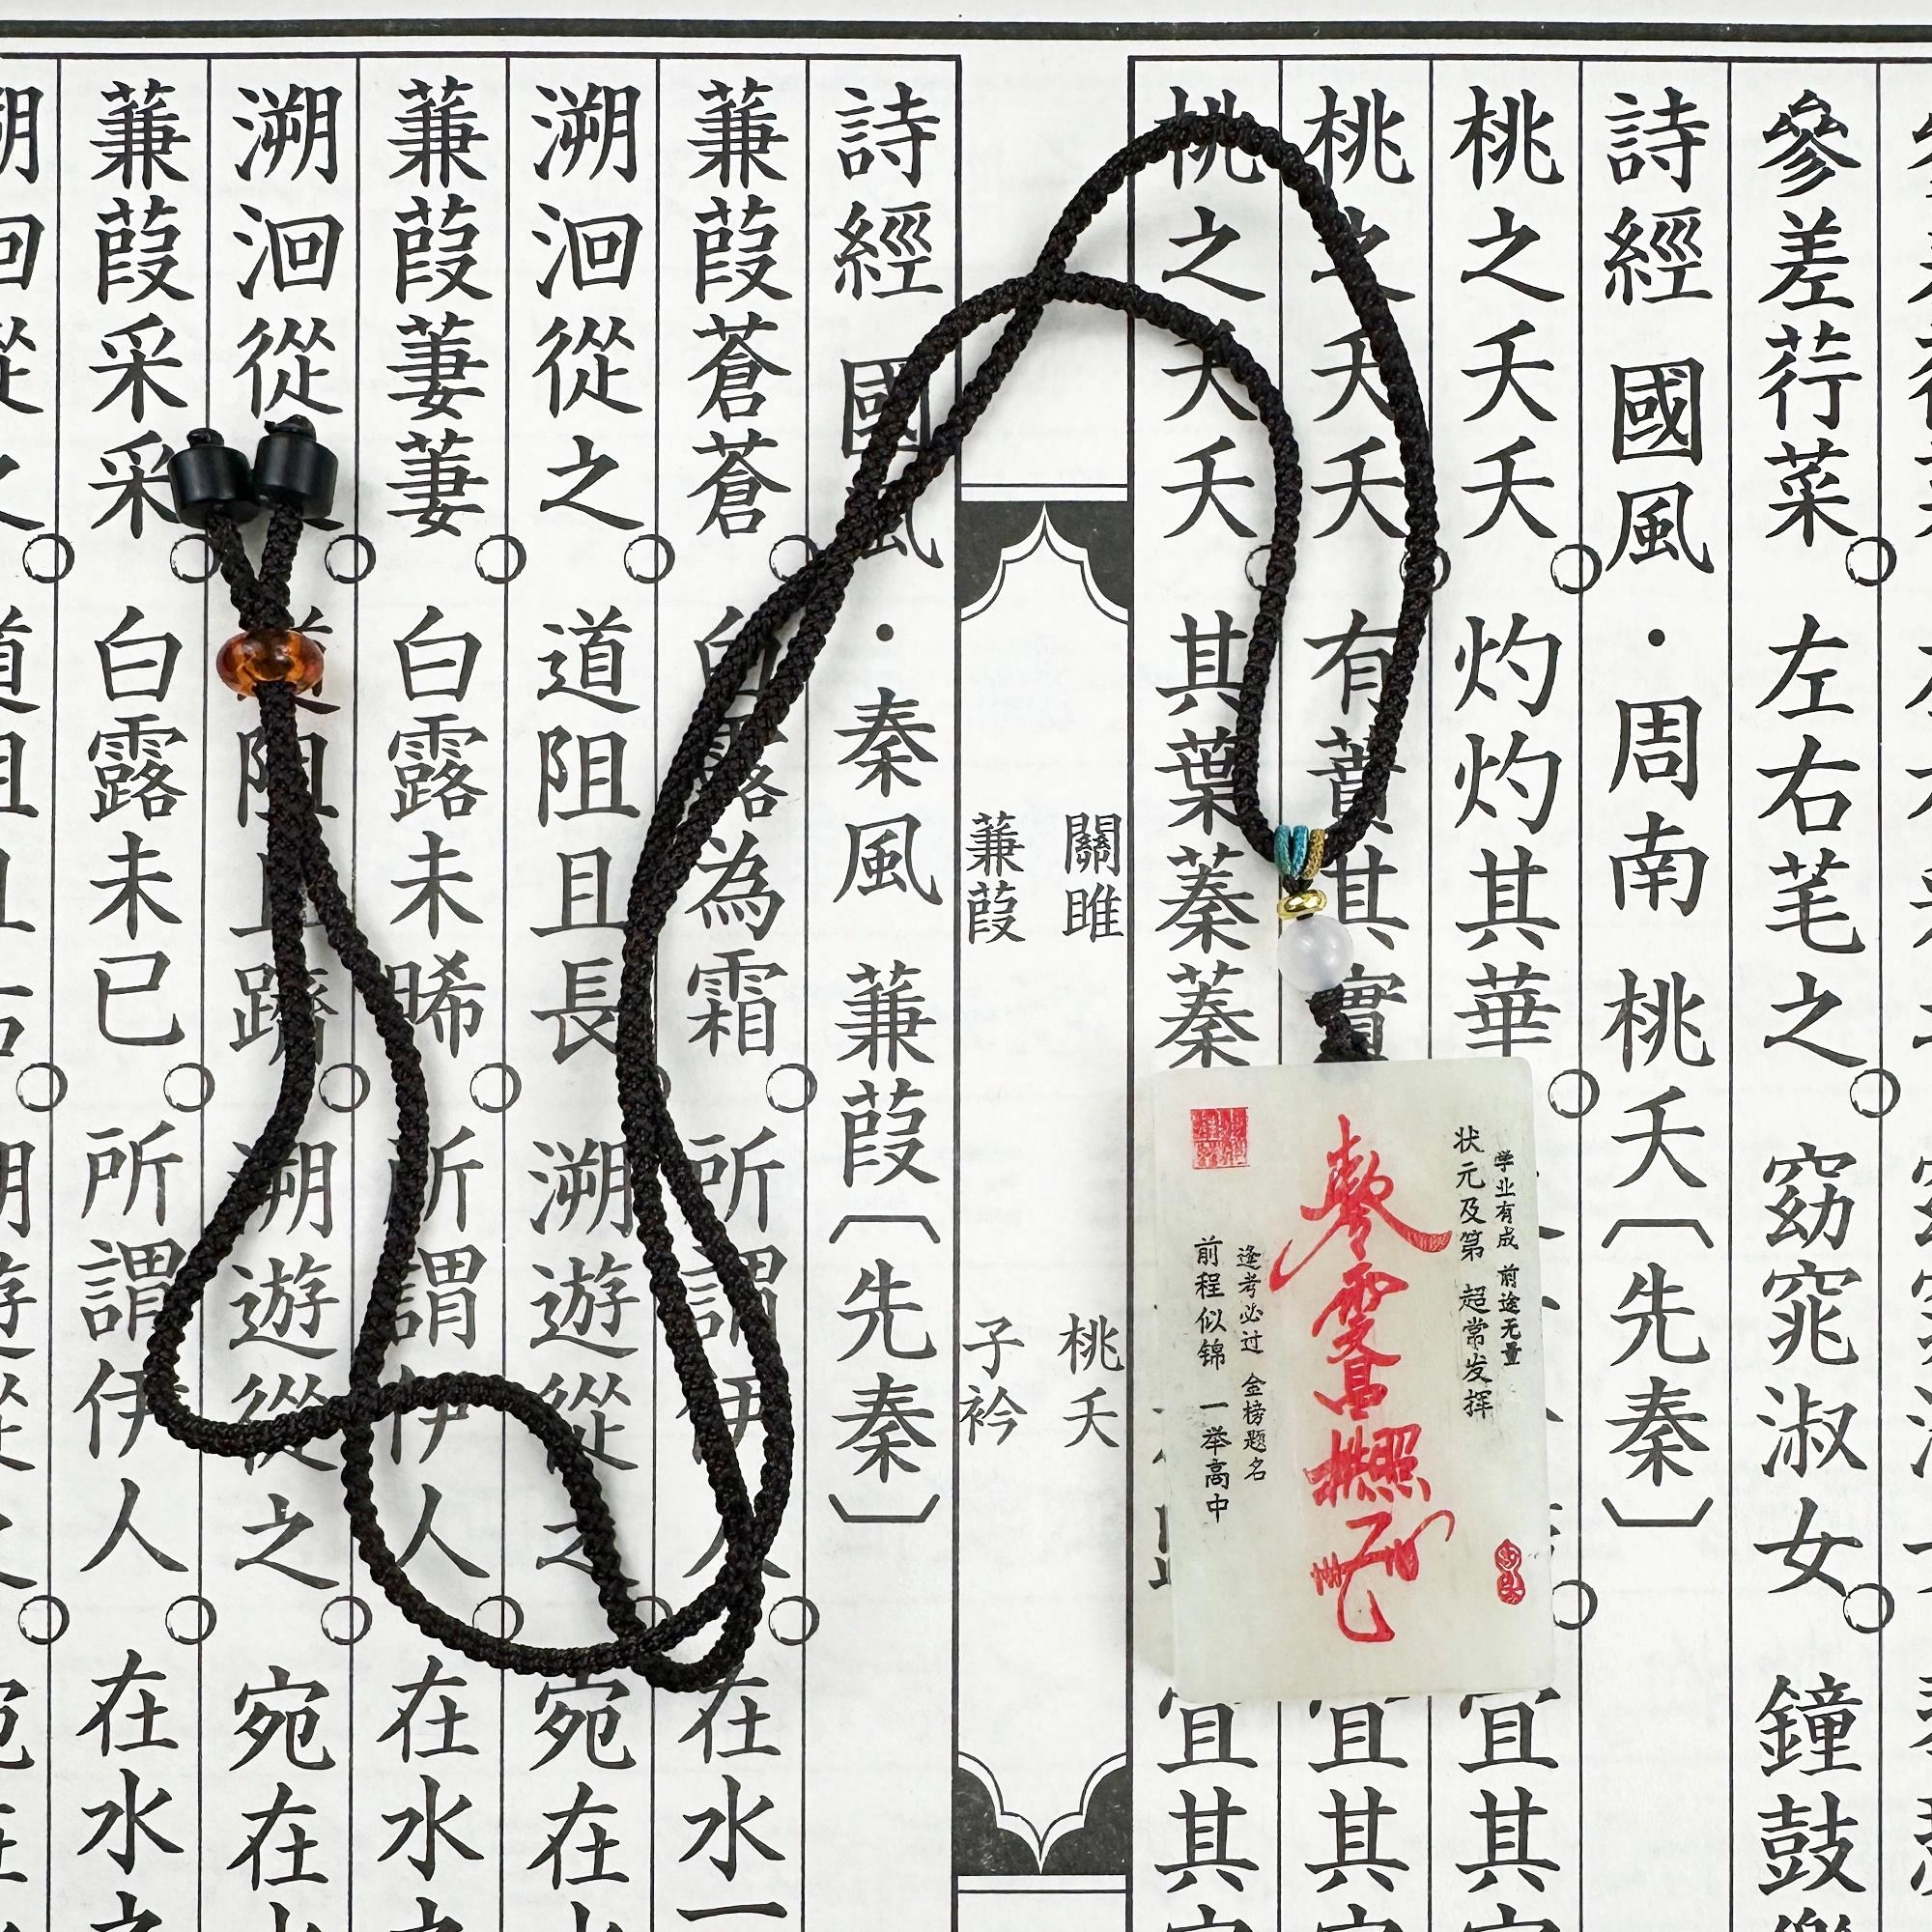 參差荇菜。左右芼之。窈窕淑女。鐘鼓
詩經 國風·周南 桃夭〔先秦〕
桃之夭夭。灼灼其華。宜其
桃之夭夭。有蕡其實。宜其
桃之夭夭。其葉蓁蓁。宜其
關雎 桃夭
蒹葭 子衿
詩經 國風·秦風 蒹葭〔先秦〕
蒹葭蒼蒼。白露為霜。所謂伊人。在水一
溯洄從之。道阻且長。溯遊從之。宛在
蒹葭萋萋。白露未晞。所謂伊人。在水之
溯洄從之。道阻且躋。溯遊從之。宛在水
蒹葭采采。白露未已。所謂伊人。在水之
溯洄從之。道阻且右。溯遊從之。宛在
学业有成 前途无量
状元及第 超常发挥
逢考必过 金榜题名
前程似锦 一举高中